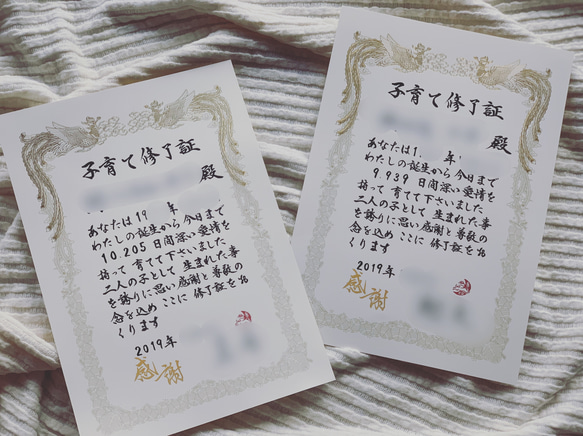 子育て修了証
殿
あなたは19 年
わたしの誕生から今日まで
10.205 日間深い愛情を
持って育てて下さいました
二人の子として 生まれた事
を誇りに思い感謝と尊敬の
念を込め ここに 修了証をお
くります
2019年
感謝
子育て修了証
殿
あなたは1. 年
わたしの誕生から今日まで
9.939 日間深い愛情を
持って 育てて下さいました
二人の子として 生まれた事
を誇りに思い 感謝と尊敬の
念を込め ここに 修了証をお
くります
2019年
感謝